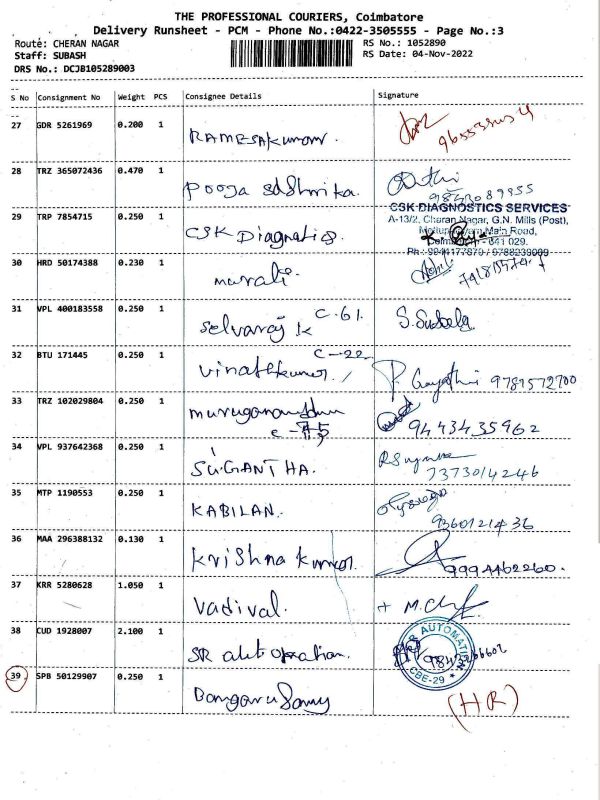 THE PROFESSIONAL COURIERS, Coimbatore
Delivery Runsheet - PCM - Phone No.:0422-3505555 - Page No.:3
Route: CHERAN NAGAR
RS No.: 1052890
Staff: SUBASH
RS Date: 04-Nov-2022
DRS No.: DCJB105289003
S No Consignment No Weight PCS Consignee Details Signature
27 GDR 5261969 0.200 1
28 TRZ 365072436 0.470 1 Pooja
9843089855
29 TRP 7854715 0.250 1 CSK Diagnatics
CSK DIAGNOSTICS SERVICES
A-13/2, Charan Nagar, G.N. Mills (Post),
Main Road,
641 029.
30 HRD 50174388 0.230 1 murali
31 VPL 400183558 0.250 1 selvaraj k C-61 S.Subala
32 BTU 171445 0.250 1 vinothkumar C-22 P. Gayathri 9781572700
33 TRZ 102029804 0.250 1
9443435962
34 VPL 937642368 0.250 1 SUGANTHA.
7373014246
35 MTP 1190553 0.250 1 KABILAN.
9360121436
36 MAA 296388132 0.130 1 Krishna kumar
9994462260.
37 KRR 5280628 1.050 1 Vadival.
38 CUD 1928007 2.100 1 SR automation.
AUTOMATION
CBE-29
39 SPB 50129907 0.250 1 BangaruSamy
(HR)